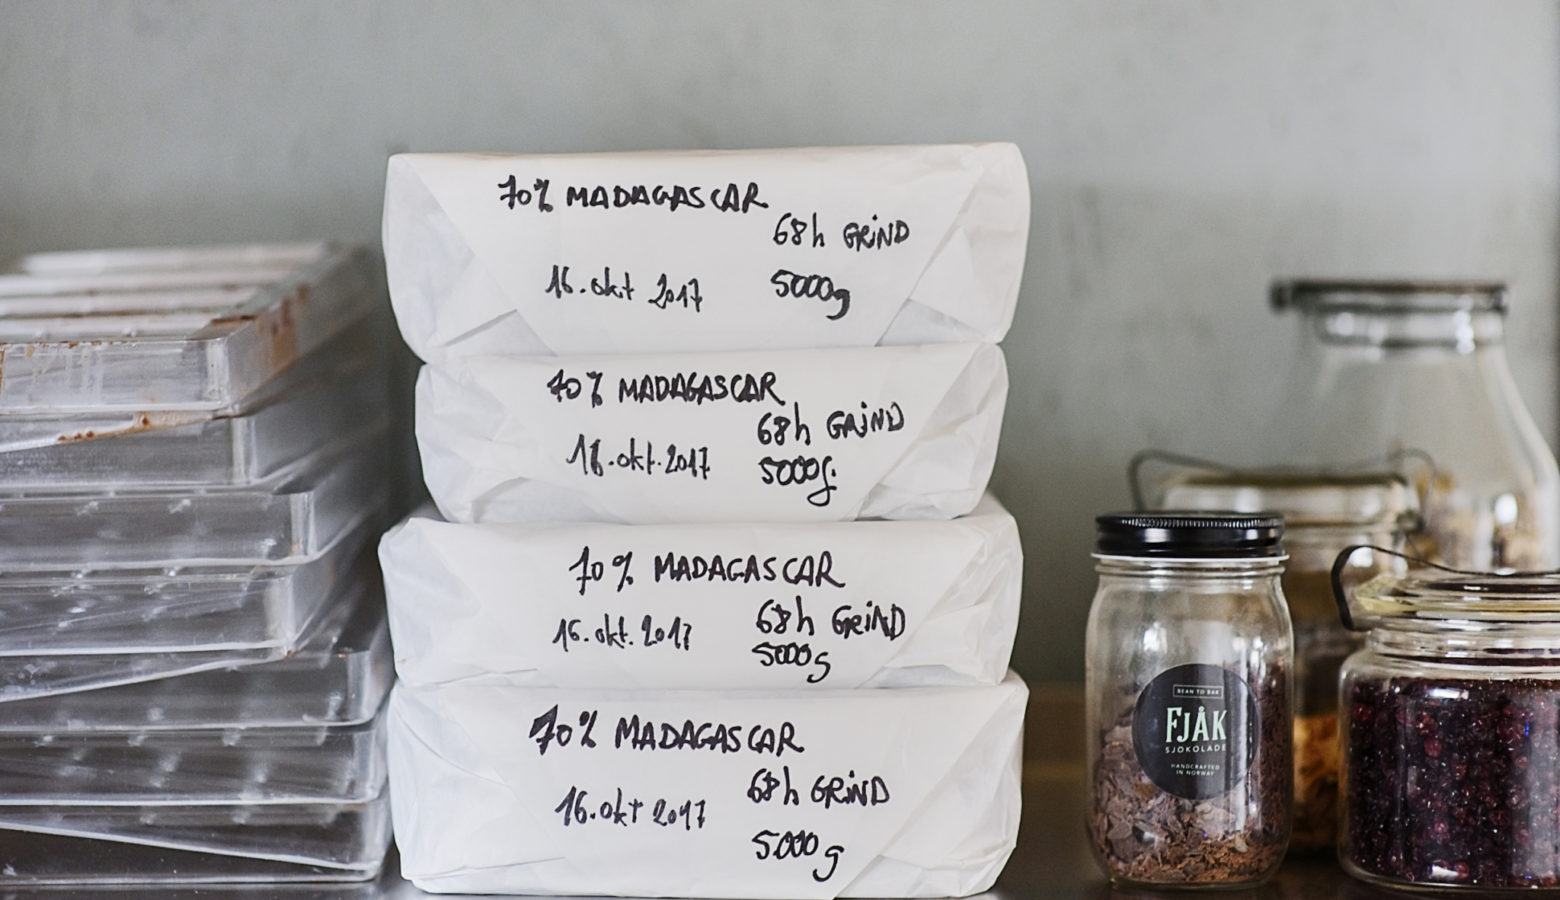 70% MADAGASCAR
68h GRIND
16. okt 2017
5000g
70% MADAGASCAR
68h GRIND
16. okt. 2017
5000g.
70% MADAGASCAR
68h GRIND
16. okt. 2017
5000g
70% MADAGASCAR
68h GRIND
16. okt 2017
5000g
BEAN TO BAR
FJÅK
SJOKOLADE
HANDCRAFTED
IN NORWAY